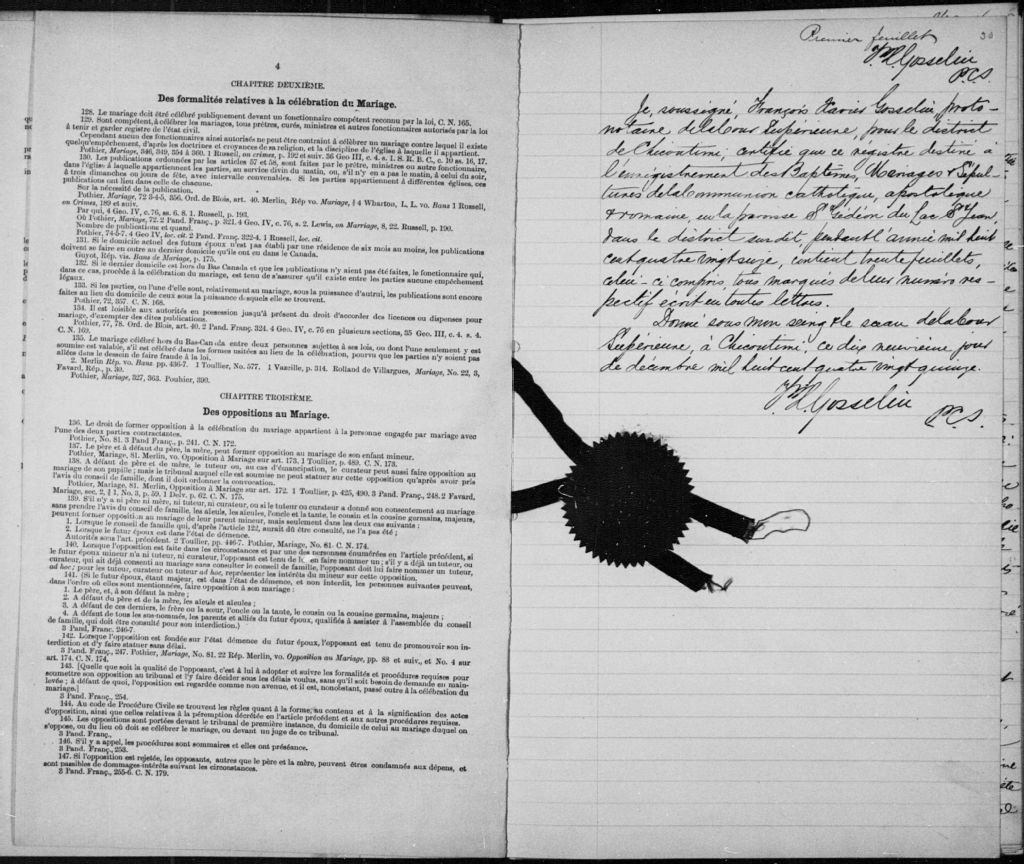 4
CHAPITRE DEUXIÈME.
Des formalités relatives à la célébration du Mariage.
128. Le mariage doit être célébré publiquement devant un fonctionnaire compétent reconnu par la loi, C. N. 165.
129. Sont compétent, à célébrer les mariages, tous prêtres, curés, ministres et autres fonctionnaires autorisés par la loi
à tenir et garder registre de l'état civil.
Cependant aucun des fonctionnaires ainsi autorisés ne peut être contraint à célébrer un mariage contre lequel il existe
quelqu'empêchement, d'après les doctrines et croyances de sa religion, et la discipline de l'église à laquelle il appartient.
Pothier, Mariage, 346, 349, 354 à 360. 1 Russell, on crimes, p. 192 et suiv. 36 Geo III, c. 4. s. 1. S. R. B. C., c. 20 ss. 16, 17.
130. Les publications ordonnées par les articles 57 et 58, sont faites par le prêtre, ministre ou autre fonctionnaire,
dans l'église à laquelle appartiennent les parties, au service divin du matin, ou, s'il n'y en a pas le matin, à celui du soir,
à trois dimanches ou jours de fête, avec intervalle convenables. Si les parties appartiennent à différentes églises, ces
publications ont lieu dans celle de chacune.
Sur la nécessité de la publication.
Pothier, Mariage, 72 3-4-5, 356. Ord. de Blois, art. 40. Merlin, Rép vo. Mariage, § 4 Wharton, L. L. vo. Bans 1 Russell,
on Crimes, 189 et suiv.
Par qui, 4 Geo. IV, c. 76, ss. 6. 8. 1. Russell, p. 193.
Où Pothier, Mariage, 72. 2 Pand. Franç., p. 321. 4 Geo IV, c. 76, s. 2. Lewis, on Marriage, 8, 22. Russell, p. 190.
Nombre de publications et quand.
Pothier, 74-5-7. 4 Geo IV, loc. cit. 2 Pand. Franç. 322-4. 1 Russell, loc. cit.
131. Si le domicile actuel des futurs époux n'est pas établi par une résidence de six mois au moins, les publications
doivent se faire en outre au dernier domicile qu'ils ont eu dans le Canada.
Guyot, Rép. vis. Bans de Mariage, p. 175.
132. Si le dernier domicile est hors du Bas Canada et que les publications n'y aient pas été faites, le fonctionnaire qui,
dans ce cas, procède à la célébration du mariage, est tenu de s'assurer qu'il existe entre les parties aucune empêchement
légaux.
133. Si les parties, ou l'une d'elle sont, relativement au mariage, sous la puissance d'autrui, les publications sont encore
faites au lieu du domicile de ceux sous la puissance desquels elle se trouvent.
Pothier, 72, 357. C. N. 168.
134. Il est loisible aux autorités en possession jusqu'à présent du droit d'accorder des licences ou dispenses pour
mariage, d'exempter des dites publications.
Pothier, 77, 78. Ord. de Blois, art. 40. 2 Pand. Franç. 324. 4 Geo. IV, c. 76 en plusieurs sections, 35 Geo. III, c. 4. s. 4.
C. N. 169.
135. Le mariage célébré hors du Bas-Canada entre deux personnes sujettes à ses lois, ou dont l'une seulement y est
soumise est valable, s'il est célébré dans les formes usitées au lieu de la célébration, pourvu que les parties n'y soient pas
allées dans le dessein de faire fraude à la loi.
2. Merlin Rép. vo. Bans pp. 436-7. 1 Toullier, No. 577. 1 Vazeille, p. 314. Rolland de Villargues, Mariage, No. 22, 3,
Favard, Rép., p. 39.
Pothier, Mariage, 327, 363. Pouhier, 390.
CHAPITRE TROISIÈME.
Des oppositions au Mariage.
136. Le droit de former opposition à la célébration du mariage appartient à la personne engagée par mariage avec
l'une des deux parties contractantes.
Pothier, No. 81. 3 Pand Franç., p. 241. C. N. 172.
137. Le père et à défaut du père, la mère, peut former opposition au mariage de son enfant mineur.
Pothier, Mariage, 81. Merlin, vo. Opposition à Mariage sur art. 173, 1 Toullier, p. 489. C. N. 173.
138. A défaut de père et de mère, le tuteur ou, au cas d'émancipation, le curateur peut aussi faire opposition au
mariage de son pupile; mais le tribunal auquel elle est soumise ne peut statuer sur cette opposition qu'après avoir pris
l'avis du conseil de famille, dont il doit ordonner la convocation.
Pothier, Mariage, 81. Merlin, Opposition à Mariage sur art. 172. 1 Toullier, p. 425, 490. 3 Pand. Franç., 248. 2 Favard,
Mariage, sec. 2, § 1, No. 3, p. 59. 1 Delv. p. 62. C. N. 175.
139. S'il n'y a ni père ni mère, ni tuteur, ni curateur, ou si le tuteur ou curateur a donné son consentement au mariage
sans prendre l'avis du conseil de famille, les aïeuls, les aïeules, l'oncle et la tante, le cousin et la cousine germains, majeurs,
peuvent former opposition au mariage de leur parent mineur, mais seulement dans les deux cas suivants:
1. Lorsque le conseil de famille qui, d'après l'article 122, aurait dû être consulté, ne l'a pas été;
2. Lorsque le futur époux est dans l'état de démence.
Autorités sous l'art. précédent. 2 Toullier, pp. 446-7. Pothier, Mariage, No. 81. C. N. 174.
140. Lorsque l'opposition est faite dans les circonstances et par une des personnes énumérées en l'article précédent, si
le futur époux mineur n'a ni tuteur, ni curateur, l'opposant est tenu de lui en faire nommer un; s'il y a déjà un tuteur, ou
curateur, qui ait déjà consenti au mariage sans consulter le conseil de famille, l'opposant doit lui faire nommer un tuteur,
ad hoc; pour les tuteur, curateur ou tuteur ad hoc, représenter les intérêts du mineur sur cette opposition.
141. (Si le futur époux, étant majeur, est dans l'état de démence, et non interdit, les personnes suivantes peuvent,
dans l'ordre où elles sont mentionnées, faire opposition à son mariage:
1. Le père, et, à son défaut la mère;
2. A défaut du père et de la mère, les aïeuls et aïeules;
3. A défaut de ces derniers, le frère ou la sœur, l'oncle ou la tante, le cousin ou la cousine germains, majeurs;
4. A défaut de tous les sus-nommés, les parents et alliés du futur époux, qualifiés à assister à l'assemblée du conseil
de famille, qui doit être consulté pour son interdiction.)
3 Pand. Franç. 246-7.
142. Lorsque l'opposition est fondée sur l'état démence du futur époux, l'opposant est tenu de promouvoir son in-
terdiction et d'y faire statuer sans délai.
3 Pand. Franç., 247. Pothier, Mariage, No. 81. 22 Rép. Merlin, vo. Opposition au Mariage, pp. 88 et suiv., et No. 4 sur
art. 174. C. N. 174.
143. [Quelle que soit la qualité de l'opposant, c'est à lui à adopter et suivre les formalités et procédures requises pour
soumettre son opposition au tribunal et l'y faire décider sous les délais voulus, sans qu'il soit besoin de demande en main-
levée; à défaut de quoi, l'opposition est regardée comme non avenue, et il est, nonobstant, passé outre à la célébration du
mariage.]
3 Pand. Franç., 254.
144. Au code de Procédure Civile se trouvent les règles quant à la forme, au contenu et à la signification des actes
d'opposition, ainsi que celles relatives à la péremption décrétée en l'article précédent et aux autres procédures requises.
145. Les oppositions sont portées devant le tribunal de première instance, du domicile de celui au mariage duquel on
s'oppose, ou du lieu où doit se célébrer le mariage, ou devant un juge de ce tribunal.
3 Pand. Franç.,
146. S'il y a appel, les procédures sont sommaires et elles ont préséance.
3 Pand. Franç., 253.
147. Si l'opposition est rejetée, les opposants, autres que le père et la mère, peuvent être condamnés aux dépens, et
sont passibles de dommages-intérêts suivant les circonstances.
3 Pand. Franç., 255-6. C. N. 179.
Premier feuillet 30
F.X. Gosselin
P.C.S.
Je, soussigné, François Xavier Gosselin, proto-
notaire de la Cour Supérieure, pour le district
de Chicoutimi, certifie que ce régistre destiné à
l'enregistrement des Baptêmes, Mariages & Sépul-
tures de la Communion catholique, apostolique
& romaine, en la paroisse St Gédéon du Lac St Jean,
dans le district susdit, pendant l'année mil huit
cent quatre vingt seize, contient trente feuillets,
celui-ci compris, tous marqués de leur numéro res-
pectif écrit en toutes lettres.
Donné sous mon seing & le sceau de la Cour
Supérieure, à Chicoutimi, ce dix neuvième jour
de décembre mil huit cent quatre vingt quinze.
F.X. Gosselin
P.C.S.